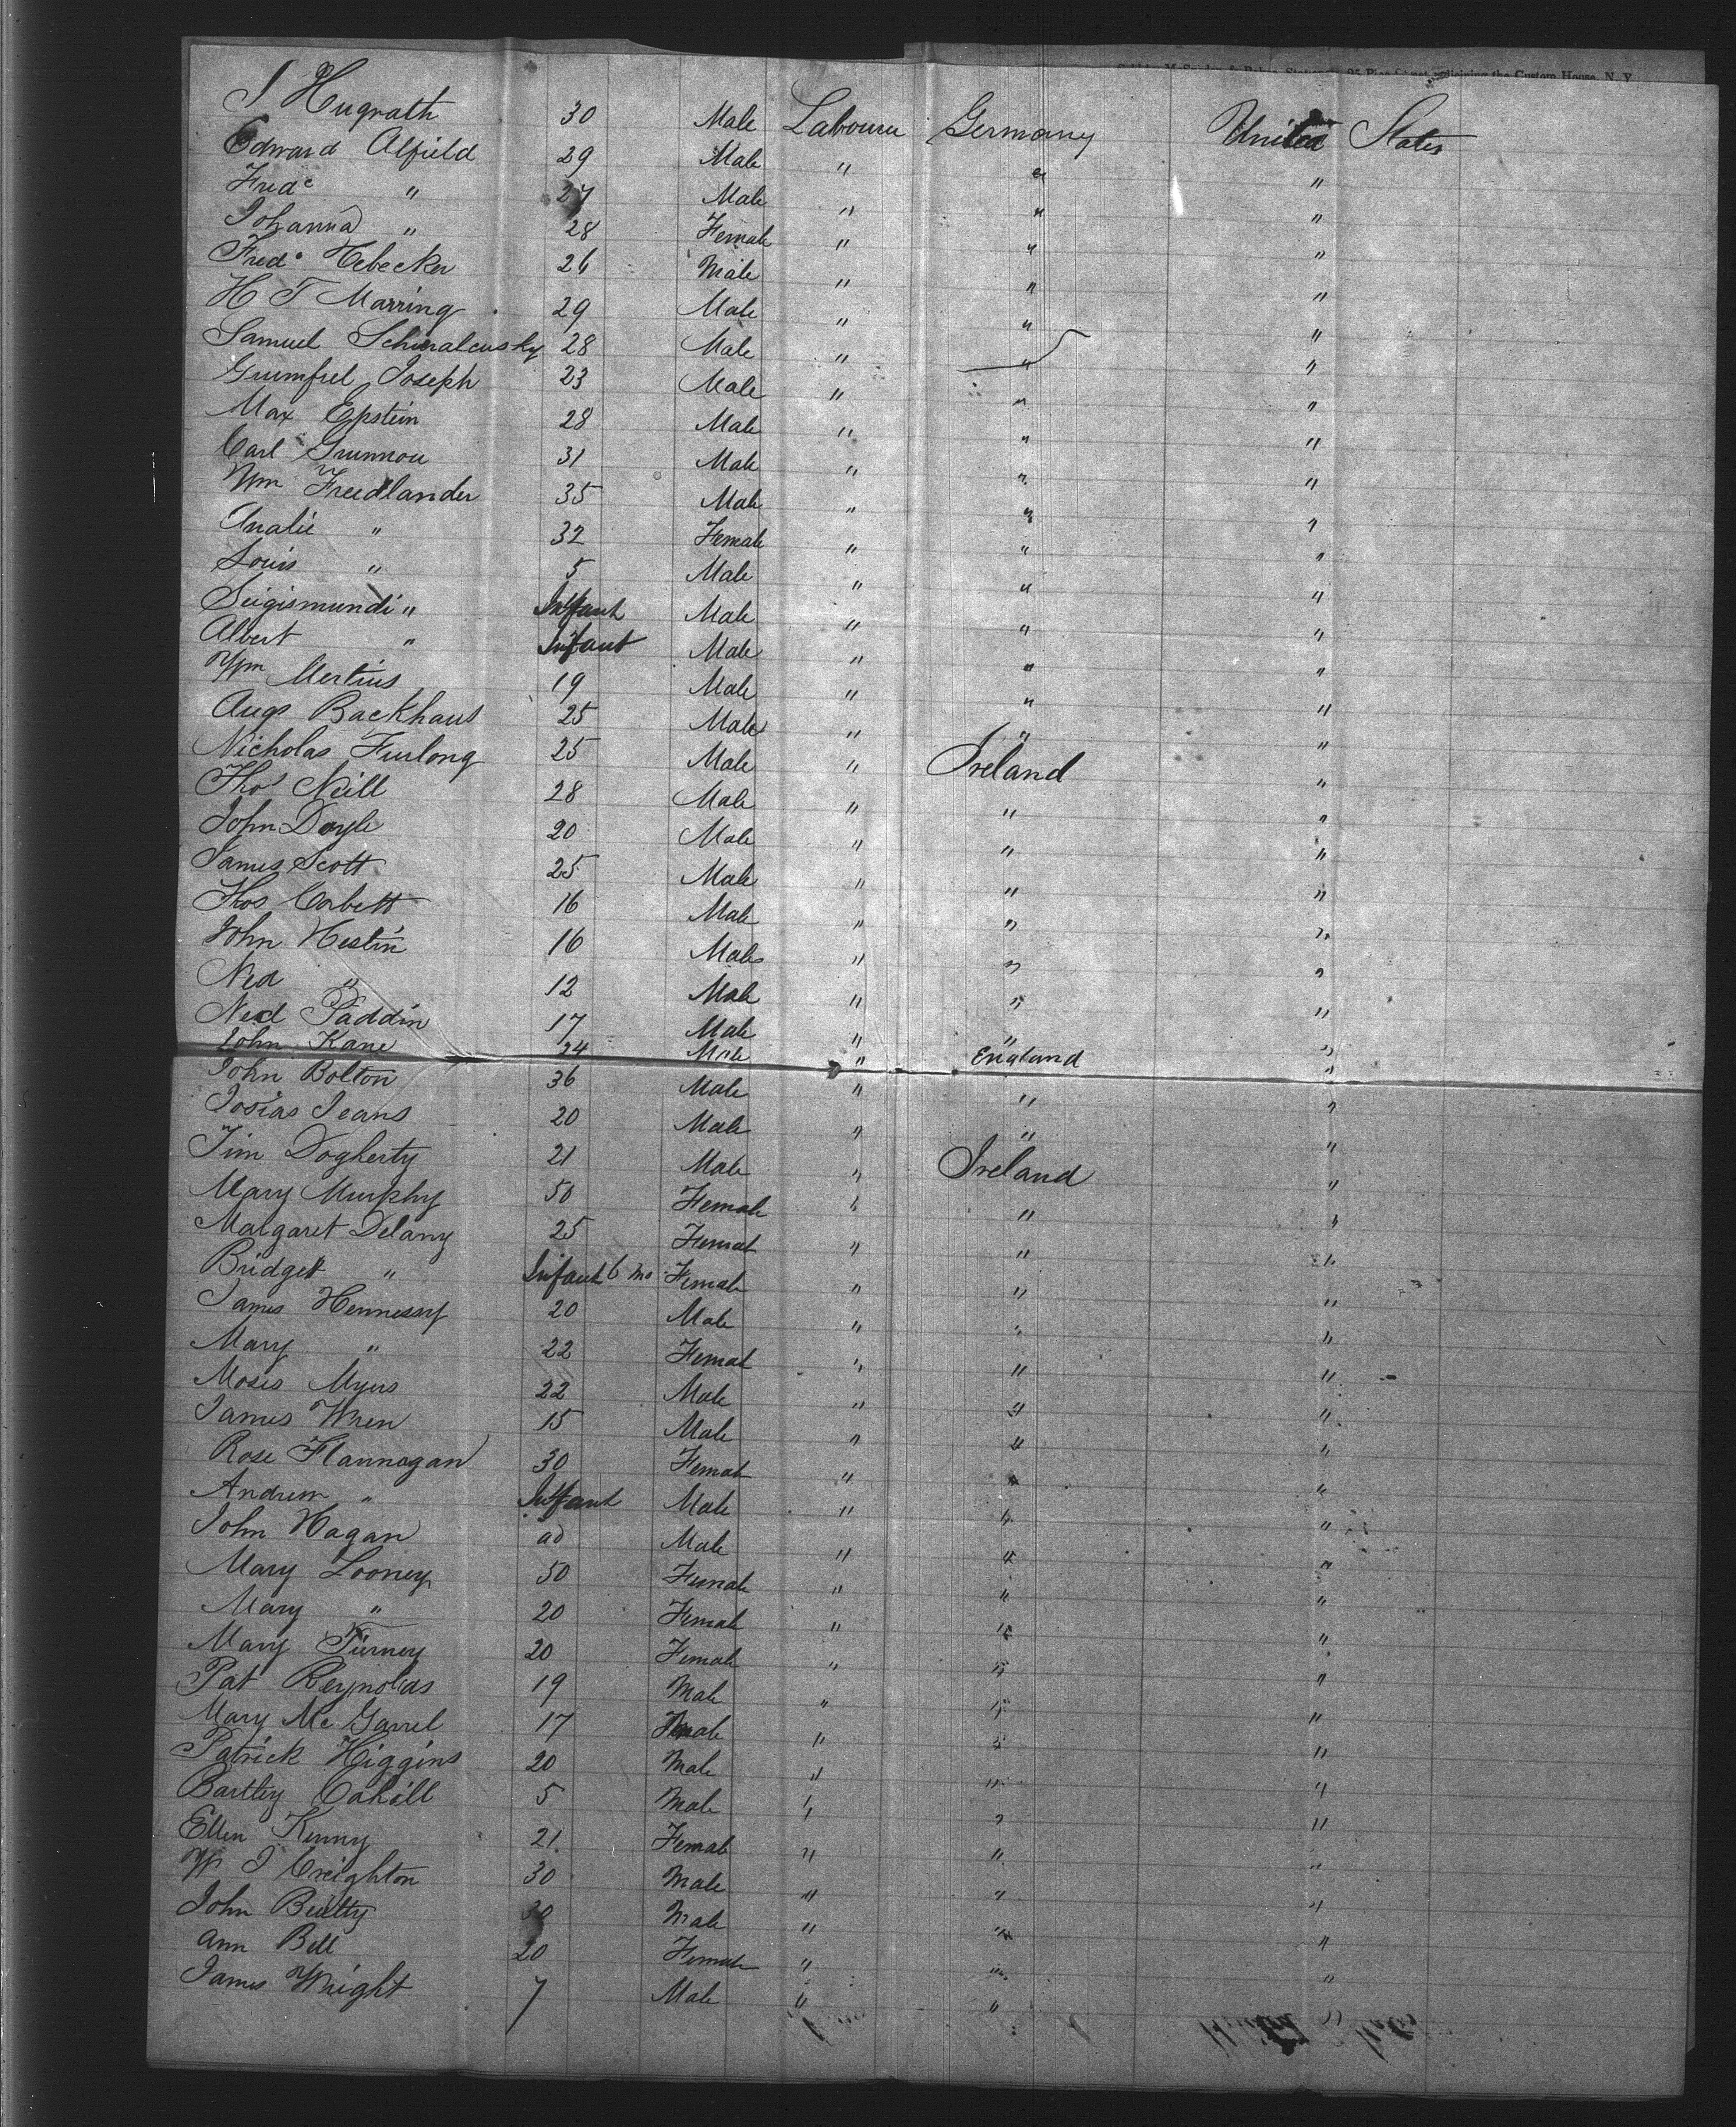 95 Pine Street adjoining the Custom House, N. Y.
J Hugrath 30 Male Labourer Germany United States
Edward Alfield 29 Male " " "
Fredc " 27 Male " " "
Johanna " 28 Female " " "
Fredc Hebecker 26 Male " " "
H T Marring 29 Male " " "
Samuel Schmalensky 28 Male " " "
Grumfiel Joseph 23 Male " " "
Max Epstein 28 Male " " "
Carl Grunnou 31 Male " " "
Wm Freedlander 35 Male " " "
Analie " 32 Female " " "
Louis " 5 Male " " "
Seigismundi " Infant Male " " "
Albert " Infant Male " " "
Wm Mertins 19 Male " " "
Augs Backhaus 25 Male " " "
Nicholas Furlong 25 Male " Ireland "
Thos Neill 28 Male " " "
John Doyle 20 Male " " "
James Scott 25 Male " " "
Thos Corbett 16 Male " " "
John Hestin 16 Male " " "
Ned " 12 Male " " "
Ned Paddin 17 Male " " "
John Kane 24 Male " England "
John Bolton 36 Male " " "
Josias Jeans 20 Male " " "
Jim Dogherty 21 Male " Ireland "
Mary Murphy 50 Female " " "
Margaret Delany 25 Female " " "
Bridget " Infant 6 mo Female " " "
James Hennessy 20 Male " " "
Mary " 22 Female " " "
Moses Myers 22 Male " " "
James Wren 15 Male " " "
Rose Flannagan 30 Female " " "
Andrew " Infant Male " " "
John Hagan 20 Male " " "
Mary Looney 50 Female " " "
Mary " 20 Female " " "
Mary Tierney 20 Female " " "
Pat Reynolds 19 Male " " "
Mary Mc Garrel 17 Female " " "
Patrick Higgins 20 Male " " "
Bartley Cahill 5 Male " " "
Ellen Kenny 21 Female " " "
W J Creighton 30 Male " " "
John Beatty 30 Male " " "
Ann Bell 20 Female " " "
James Wright 7 Male " " "